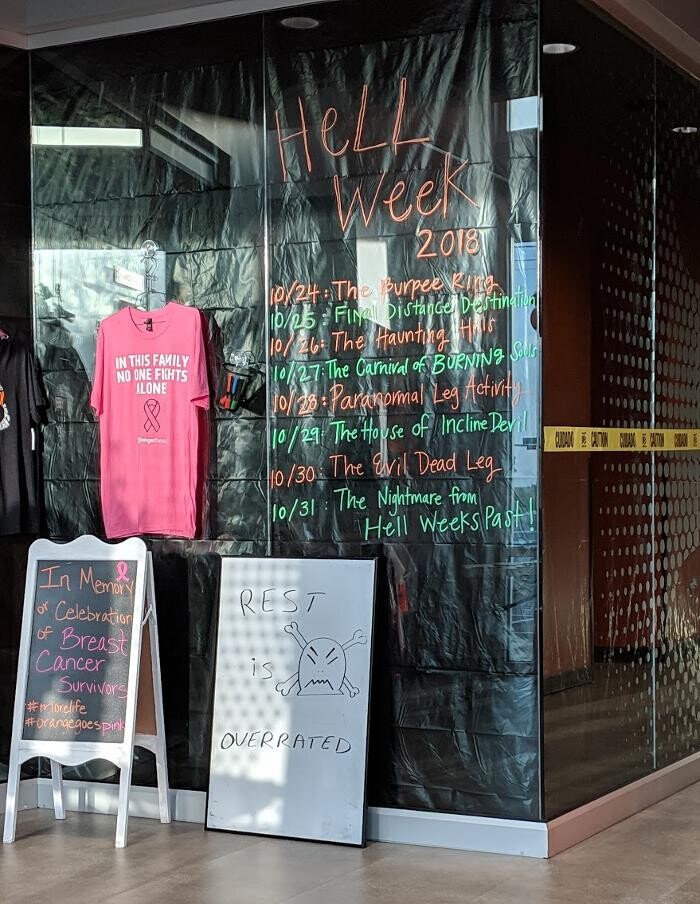 HELL
Week
2018
10/24: The Burpee Ring
10/25: Final Distance Destination
10/26: The Haunting Hills
10/27: The Carnival of BURNING Souls
10/28: Paranormal Leg Activity
10/29: The House of Incline Devil
10/30: The Evil Dead Leg
10/31: The Nightmare from
Hell Weeks Past!
IN THIS FAMILY
NO ONE FIGHTS
ALONE
CUIDADO CAUTION CUIDADO CAUTION CUIDADO
In Memory
or Celebration
of Breast
Cancer
Survivors
#morelife
#orangegoespink
REST
is
OVERRATED